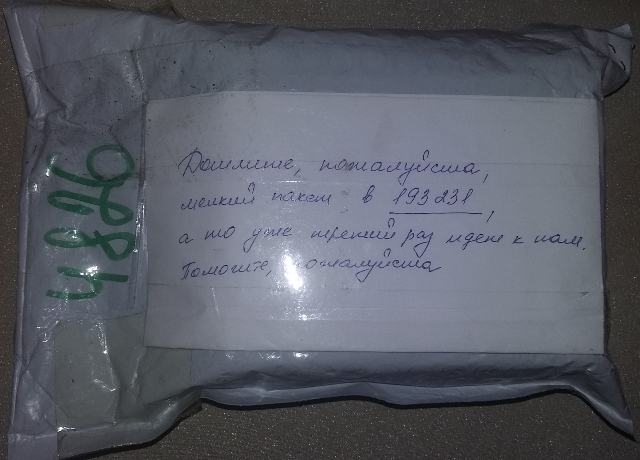 4826
Дошлите, пожалуйста,
мелкий пакет в 193231,
а то уже третий раз идет к нам.
Помогите, пожалуйста